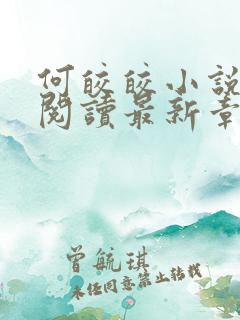 何皎皎小說
閱讀最新章
曾毓琪
未经同意禁止转载